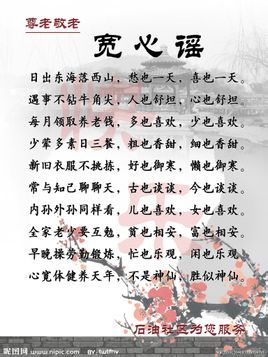 尊老敬老
宽心谣
日出东海落西山，愁也一天，喜也一天。
遇事不钻牛角尖，人也舒坦，心也舒坦。
每月领取养老钱，多也喜欢，少也喜欢。
少荤多素日三餐，粗也香甜，细也香甜。
新旧衣服不挑拣，好也御寒，懒也御寒。
常与知己聊聊天，古也谈谈，今也谈谈。
内孙外孙同样看，儿也喜欢，女也喜欢。
全家老少要互勉，贫也相安，富也相安。
早晚操劳勤锻炼，忙也乐观，闲也乐观。
心宽体健养天年，不是神仙，胜似神仙。
石油社区为您服务
昵图网
www.nipic.com